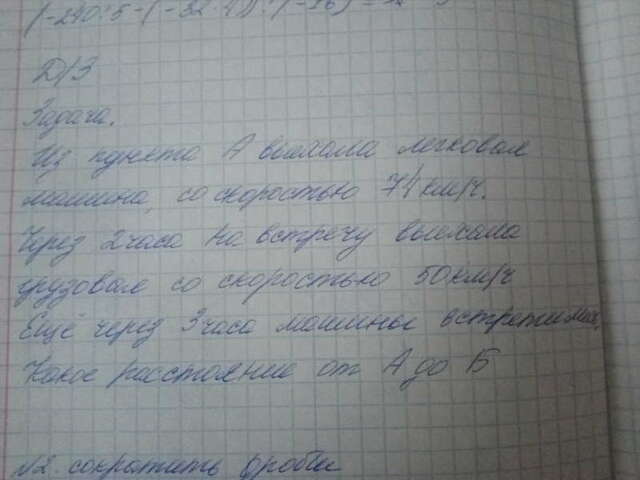 (-240:5-(-32·4)):(-16)=
Д/З
Задача.
Из пункта А выехала легковая
машина, со скоростью 74 км/ч.
Через 2 часа на встречу выехала
грузовая со скоростью 50 км/ч
Ещё через 3 часа машины встретились,
Какое расстояние от А до Б
№2. сократить дроби